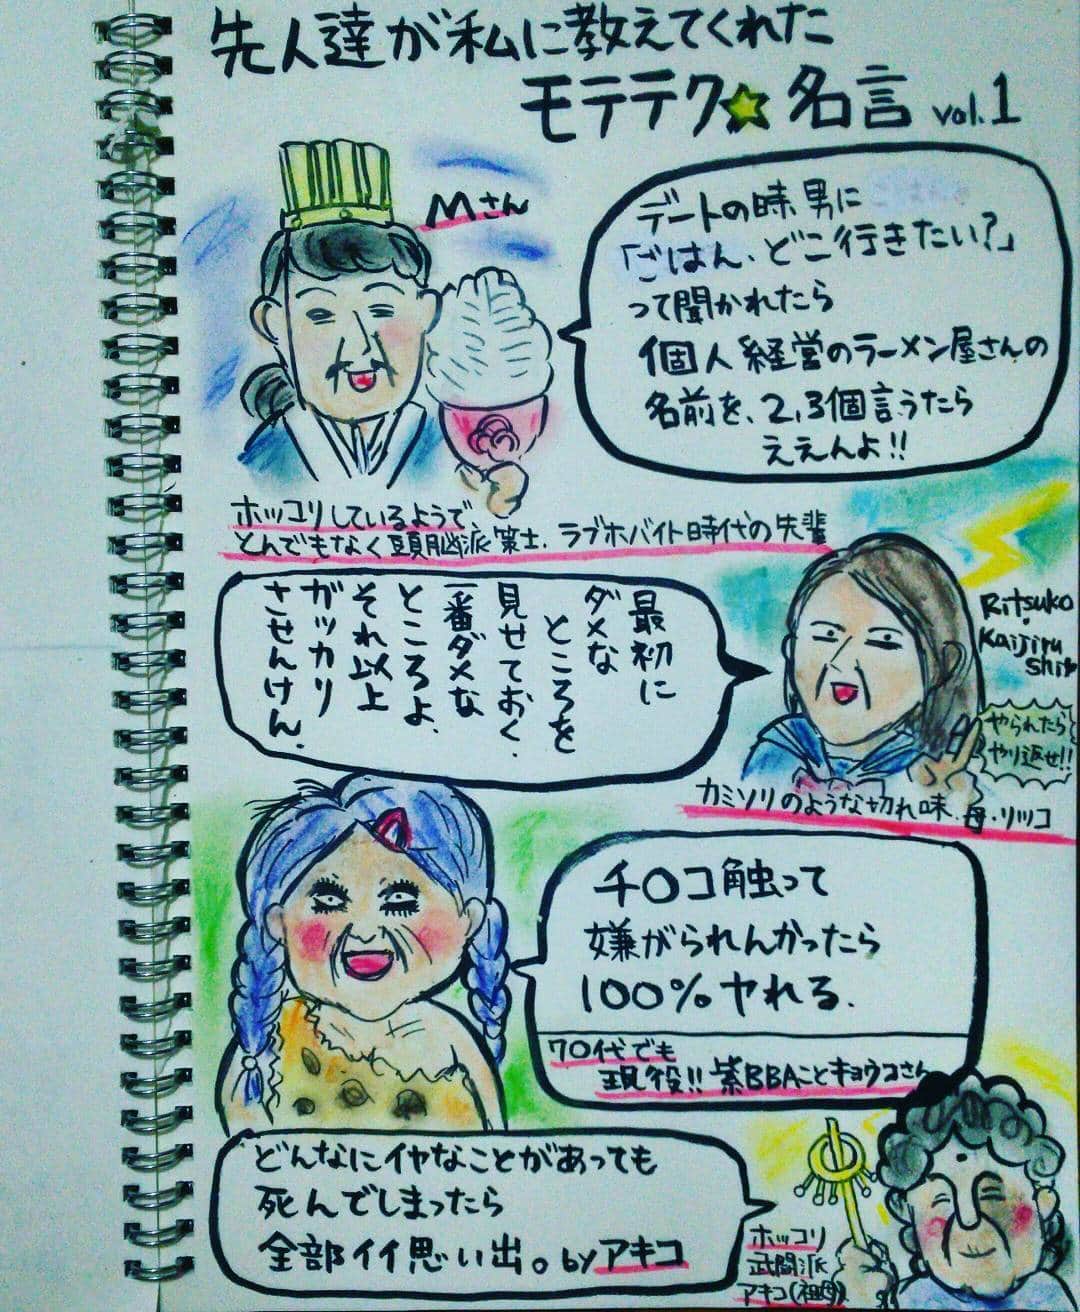 先人達が私に教えてくれた
モテテク★名言 vol.1
Mさん
デートの時、男に
「ごはん、どこ行きたい？」
って聞かれたら
個人経営のラーメン屋さんの
名前を、2,3個言うたら
ええんよ!!
ホッコリしているようで、
とんでもなく頭脳派策士、ラブホバイト時代の先輩
最初に
ダメな
ところを
見せておく、
一番ダメな
ところよ、
それ以上
ガッカリ
させんけん。
Ritsuko
Kaijiru
Shi
やられたら
やり返せ!!
カミソリのような切れ味、母・リツコ
チ〇コ触って
嫌がられんかったら
100%ヤれる。
70代でも
現役!! 紫BBAことキョウコさん
どんなにイヤなことがあっても
死んでしまったら
全部イイ思い出。byアキコ
ホッコリ
武闘派
アキコ(祖母)